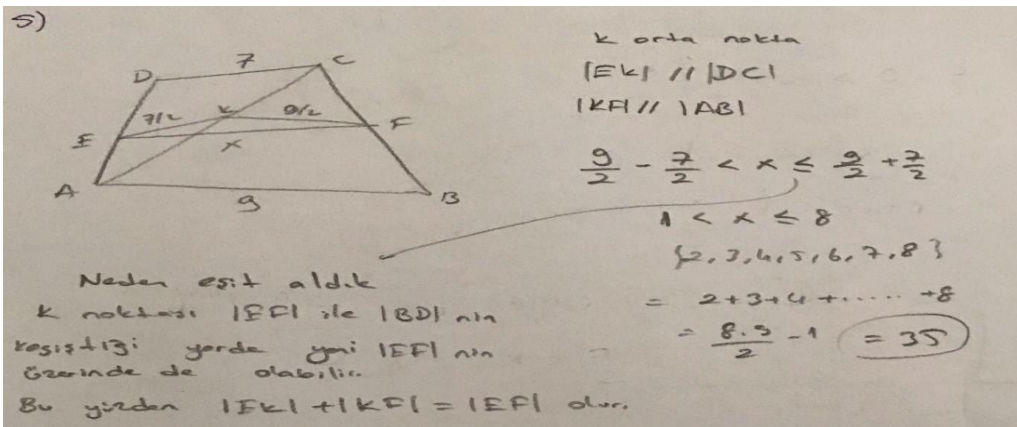 5)
D
7
C
7/2
K
9/2
E
x
F
A
9
B
K orta nokta
|EK| // |DC|
|KF| // |AB|
9/2 - 7/2 < x ≤ 9/2 + 7/2
1 < x ≤ 8
{2,3,4,5,6,7,8}
= 2+3+4+.....+8
= 8.9/2 - 1 = 35
Neden eşit aldık
K noktası |EF| ile |BD| nin
kesiştiği yerde yani |EF| nin
üzerinde de olabilir.
Bu yüzden |EK| + |KF| = |EF| olur.